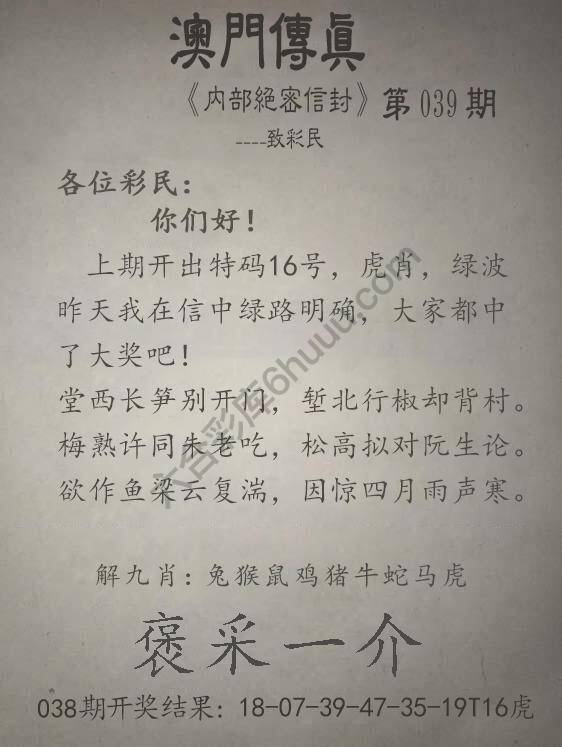 澳門傳眞
《内部絕密信封》第039期
----致彩民
各位彩民：
你们好！
上期开出特码16号，虎肖，绿波
昨天我在信中绿路明确，大家都中
了大奖吧！
堂西长笋别开门，堑北行椒却背村。
梅熟许同朱老吃，松高拟对阮生论。
欲作鱼梁云复湍，因惊四月雨声寒。
解九肖：兔猴鼠鸡猪牛蛇马虎
褒采一介
038期开奖结果：18-07-39-47-35-19T16虎
六合彩库6huuu.com